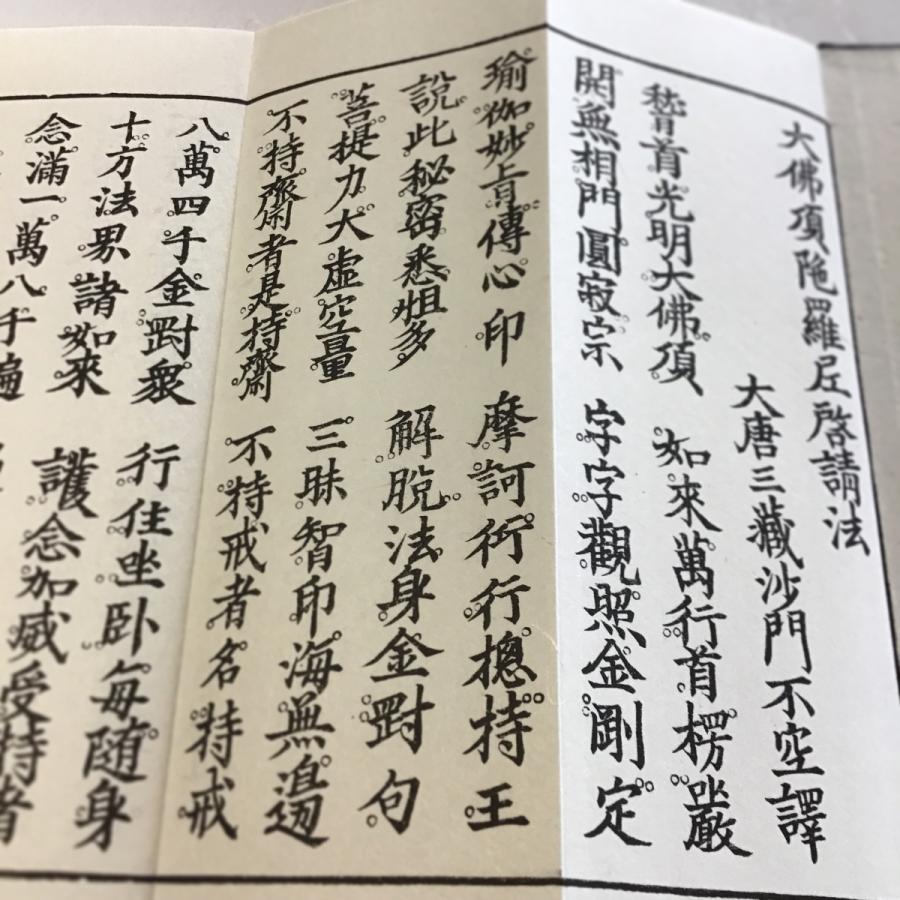 大佛頂陁羅尼啓請法
大唐三藏沙門不空譯
稽首光明大佛頂 如來萬行首楞嚴
開無相門圓寂宗 字字觀照金剛定
瑜伽妙旨傳心印 摩訶衍行摠持王
說此秘密悉怛多 解脫法身金剛句
菩提力大虛空量 三昧智印海無邊
不持齋者是持齋 不持戒者名持戒
八萬四千金剛衆 行住坐卧每隨身
十方法界諸如來 護念加威受持者
念滿一萬八千遍